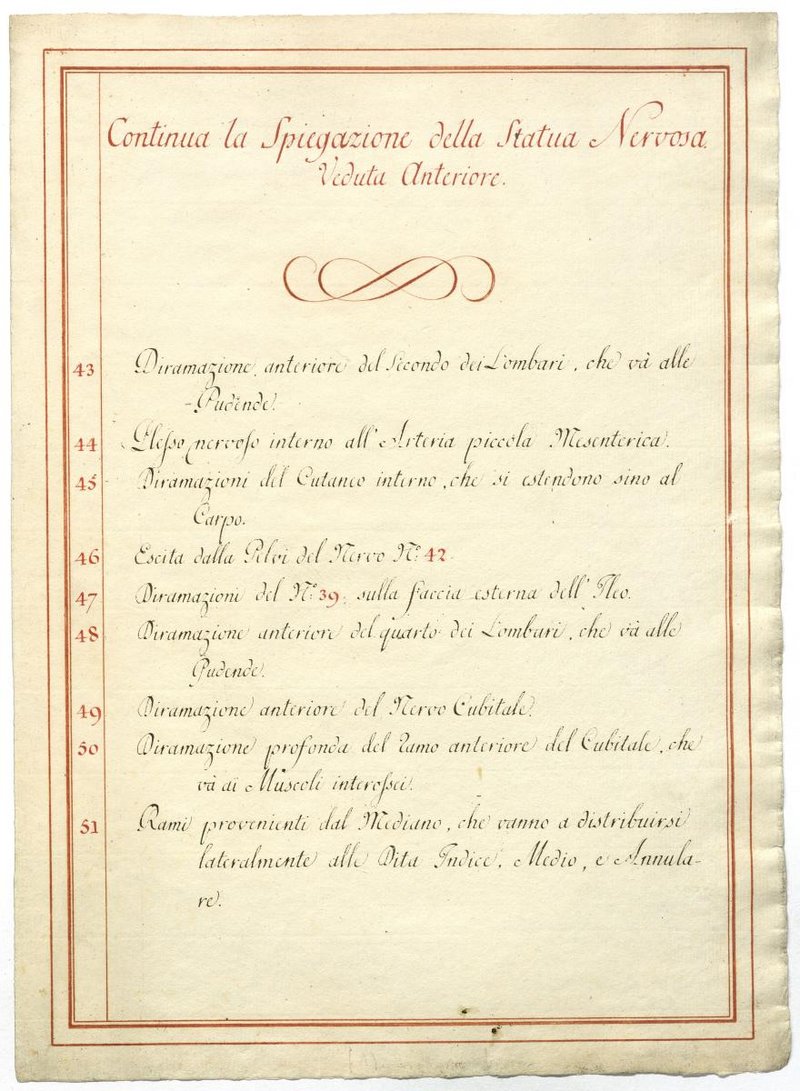 Continua la Spiegazione della Statua Nervosa.
Veduta Anteriore.
43 Diramazione anteriore del Secondo dei Lombari, che và alle
-Pudende.
44 Plesso nervoso interno all'Arteria piccola Mesenterica.
45 Diramazioni del Cutaneo interno, che si estendono sino al
Carpo.
46 Escita dalla Pelvi del Nervo N.º 42.
47 Diramazioni del N.º 39, sulla faccia esterna dell'Ileo.
48 Diramazione anteriore del quarto dei Lombari, che và alle
Pudende.
49 Diramazione anteriore del Nervo Cubitale.
50 Diramazione profonda del ramo anteriore del Cubitale, che
và ai Muscoli interossei.
51 Rami provenienti dal Mediano, che vanno a distribuirsi
lateralmente alle Dita Indice, Medio, e Annula-
re.